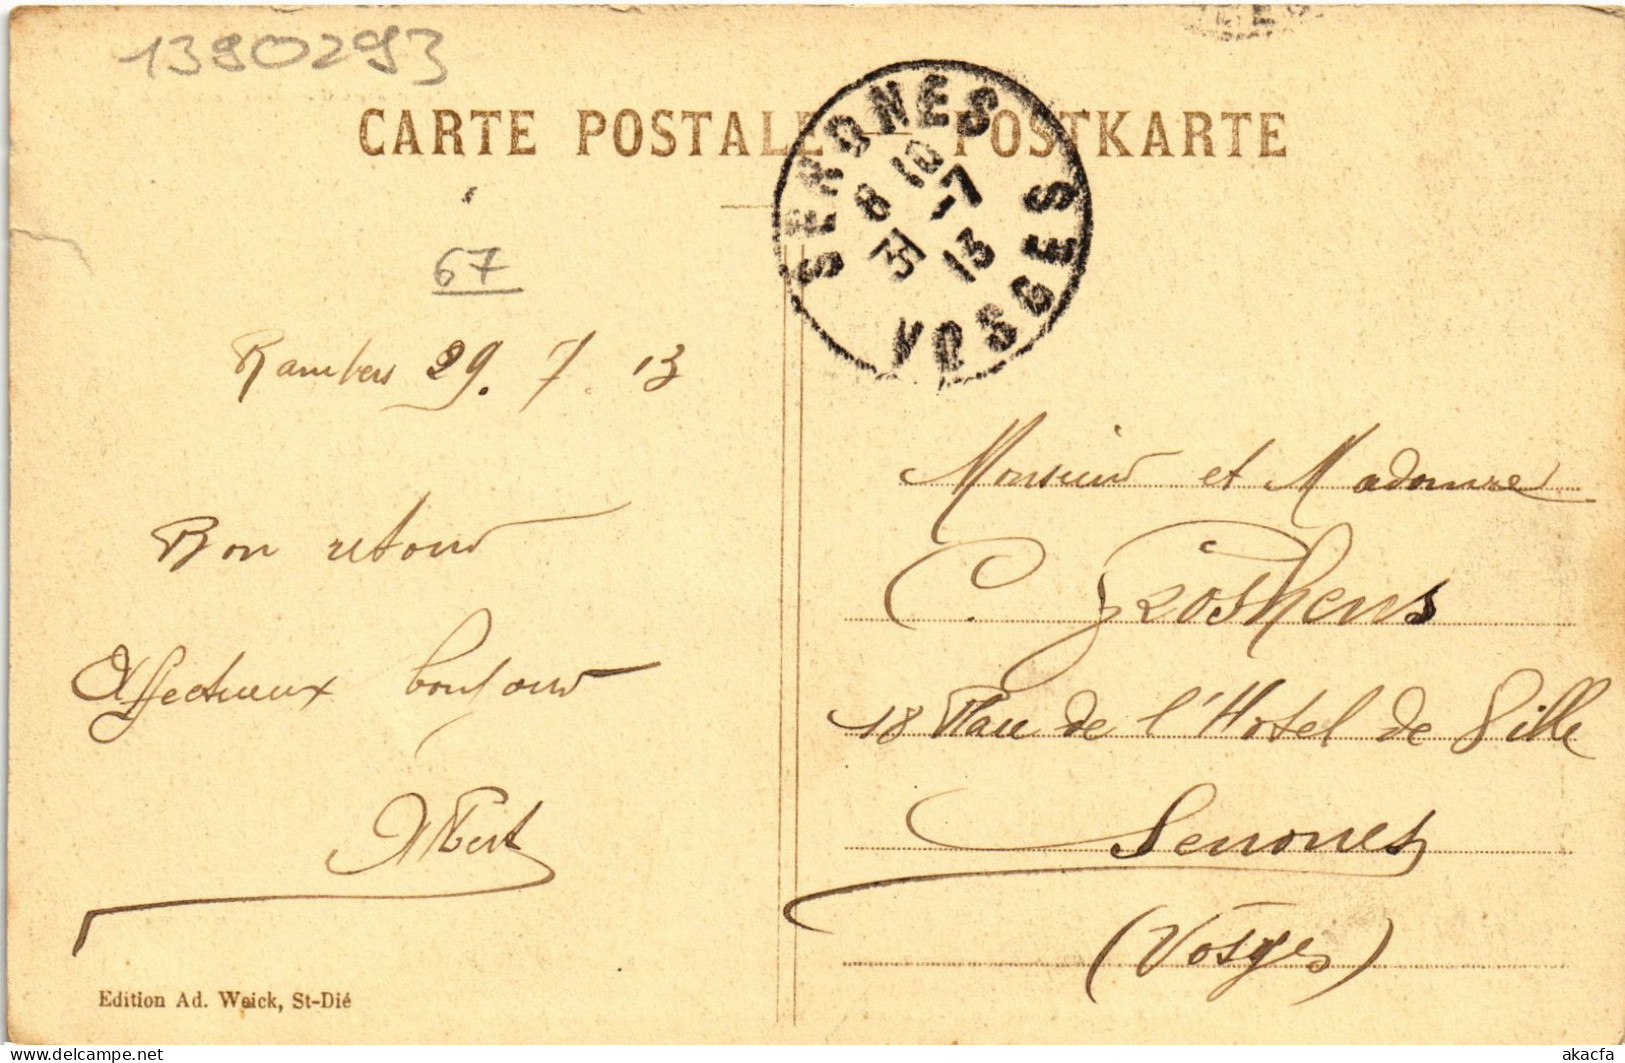 1390293
CARTE POSTALE — POSTKARTE
SENONES
8 10
31 -7
13
VOSGES
67
29. 7. 13
Bon retour
Affectueux bonjour
Albert
Monsieur et Madame
C. Groshens
18 Place de l'Hotel de Ville
Senones
(Vosges)
Edition Ad. Weick, St-Dié
delcampe.net
akacfa